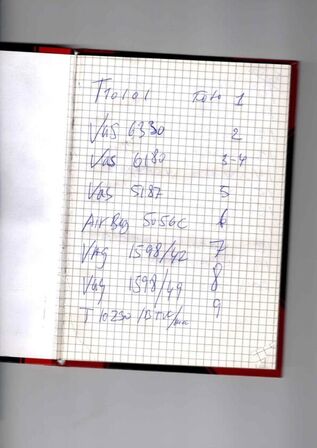 T10101 Foto 1
VAS 6330 2
Vas 6180 3-4
Vas 5187 5
AirBag 5056C 6
VAG 1598/42 7
VAG 1598/49 8
T 10230 9